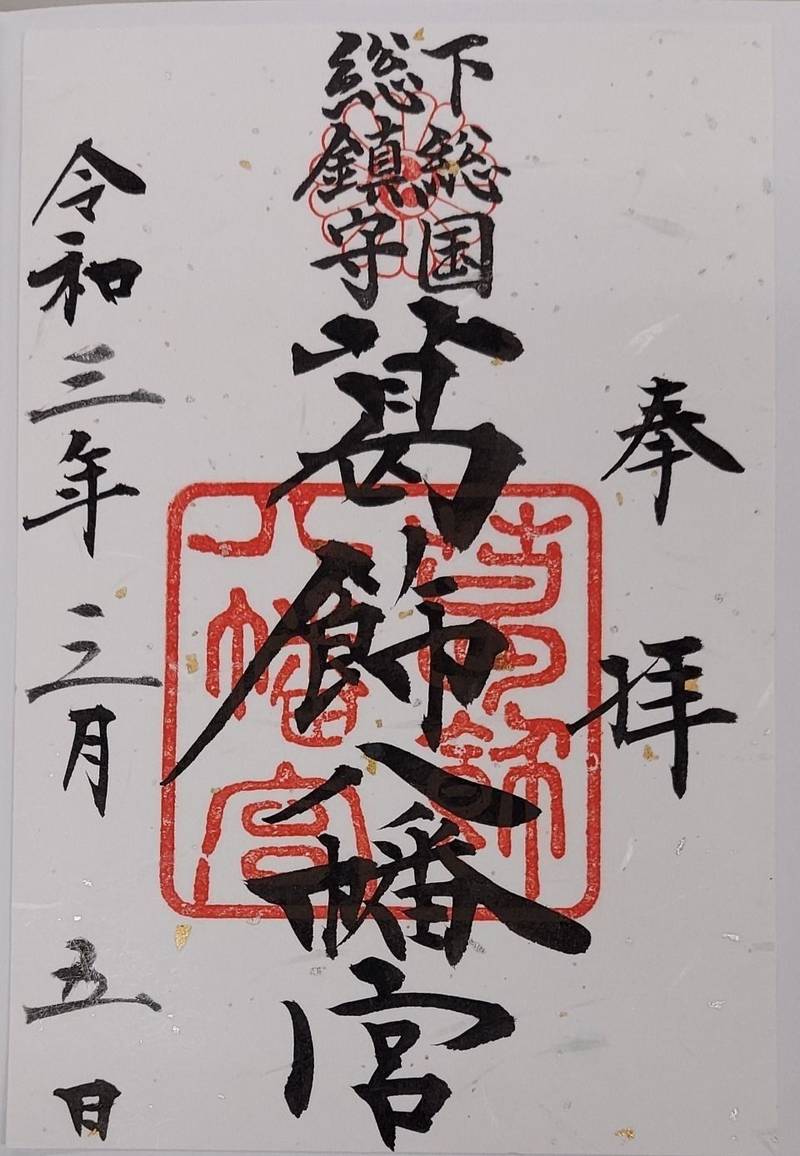 奉拝
下総国
総鎮守
葛飾八幡宮
葛飾
八幡宮
令和三年三月五日